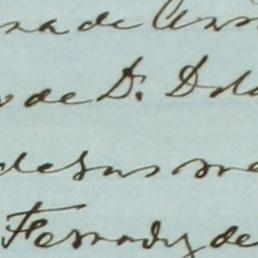 na de
o de D. Dolo
de sus me
Fernandez de